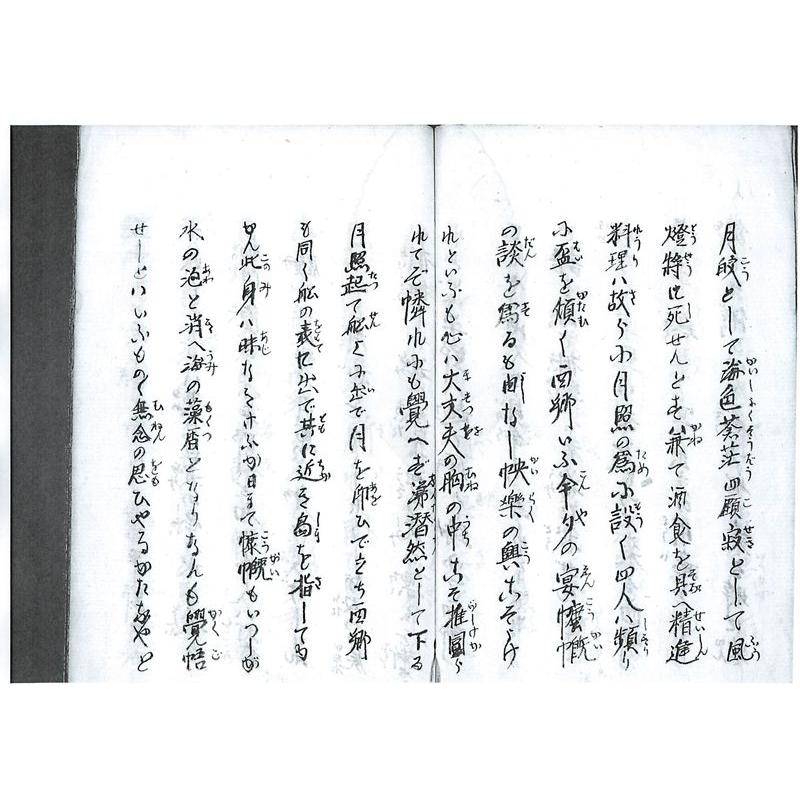 月皎として海色蒼茫四顧寂として風
燈将に死せんとす兼て酒食を具へ精進
料理ハ故らに月照の為に設く四人ハ頻り
に盃を傾く西郷いふ今夕の宴慷慨
の談を為るも由なし快楽の興こそよけ
れといふも心ハ大丈夫の胸の中こそ推図ら
れてぞ憐れにも覚へず涕潜然として下る
月照起て船上に出で月を仰ひで立ち西郷
も同く船の表に出で其に近き島を指して
せん此身ハ味なきけふか日まで慷慨もいつしか
水の泡と消へ海の藻屑となりなんも覚悟
せしとハいふものゝ無念の思ひやるかたなやと